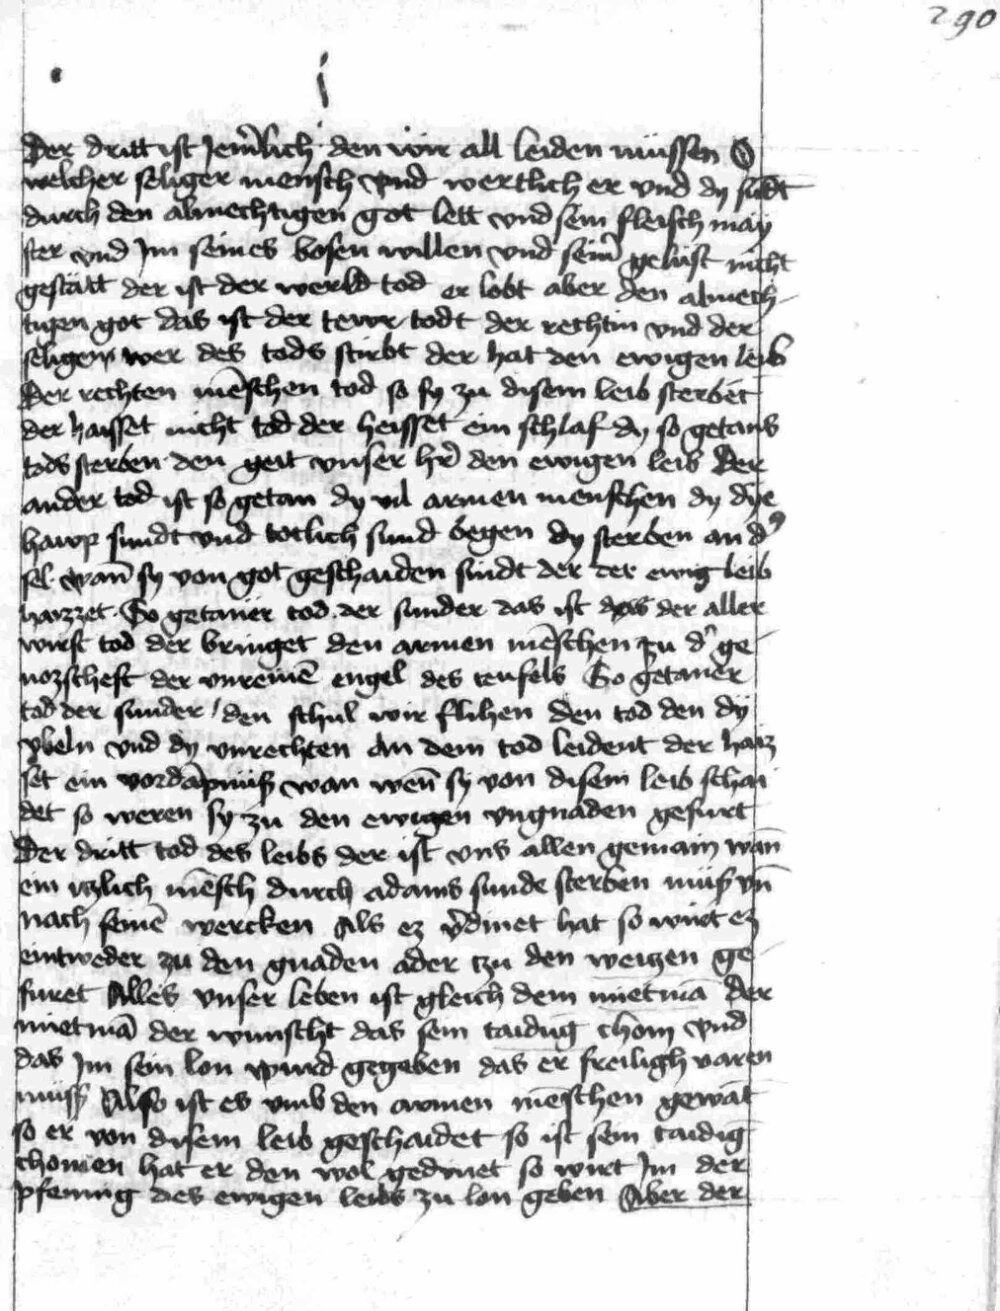 290
Der dritt ist Jem̄lich den wir all leiden müssen O
welcher seliger mensch vnd wertlich er vnd dy sündt
durch den almechtigen got lett vnd sein fleisch may
ster vnd Jm seines bosen willen vnd sein̄ gelüst nicht
gestätt der ist der werld tod er lobt aber den almech
tigen got das ist der tewr todt der rechtin vnd der
seligen wer des tods stirbt der hat den ewigen leib
Der rechten mēschen tod so sy zu disem leib sterbēt
der haisset nicht tod der heisset ein schlaf dy so getans
tods sterben den geit vnser hr̄ den ewigen leib Der
ander tod ist so getan dy vil armen menschen dy dye
hawp sundt vnd totlich sund begen dy sterben an d᾽
sel wan̄ sy von got geschaiden sindt der der ewig leib
haizzet So getaner tod der sunder das ist das der aller
wirst tod der bringet den armen mēschen zu d᾽ ge
nozscheft der vnreinē engel des teufels So getaner
tod der sunder den schul wir flihen Den tod den dy
vbeln vnd dy vnrechten an dem tod leident der haiz
set ein vordāpnüß wan wen̄ sy von disem leib schai
det so weren sy zu den ewigen vngnaden gefurt
Der dritt tod des leibs der ist vns allen gemain wan̄
ein itzlich mēsch durch adams sunde sterben müß vn̄
nach seinē wercken Als ez v̄dinet hat so wirt ez
eintweder zu den gnaden ader tzu den weizen ge
furet Alles vnser leben ist gleich dem mietmā Der
mietmā der wunscht das sein taidūg chom vnd
das Jm sein lon wurd gegeben das er freiligh varen
müss Also ist es vmb den armen mēschen gewāt
so er von disem leib geschaidet so ist sein taidīg
chomen hat er den wol gedinet so wirt Jm der
pfening des ewigen leibs zu lon geben Aber der